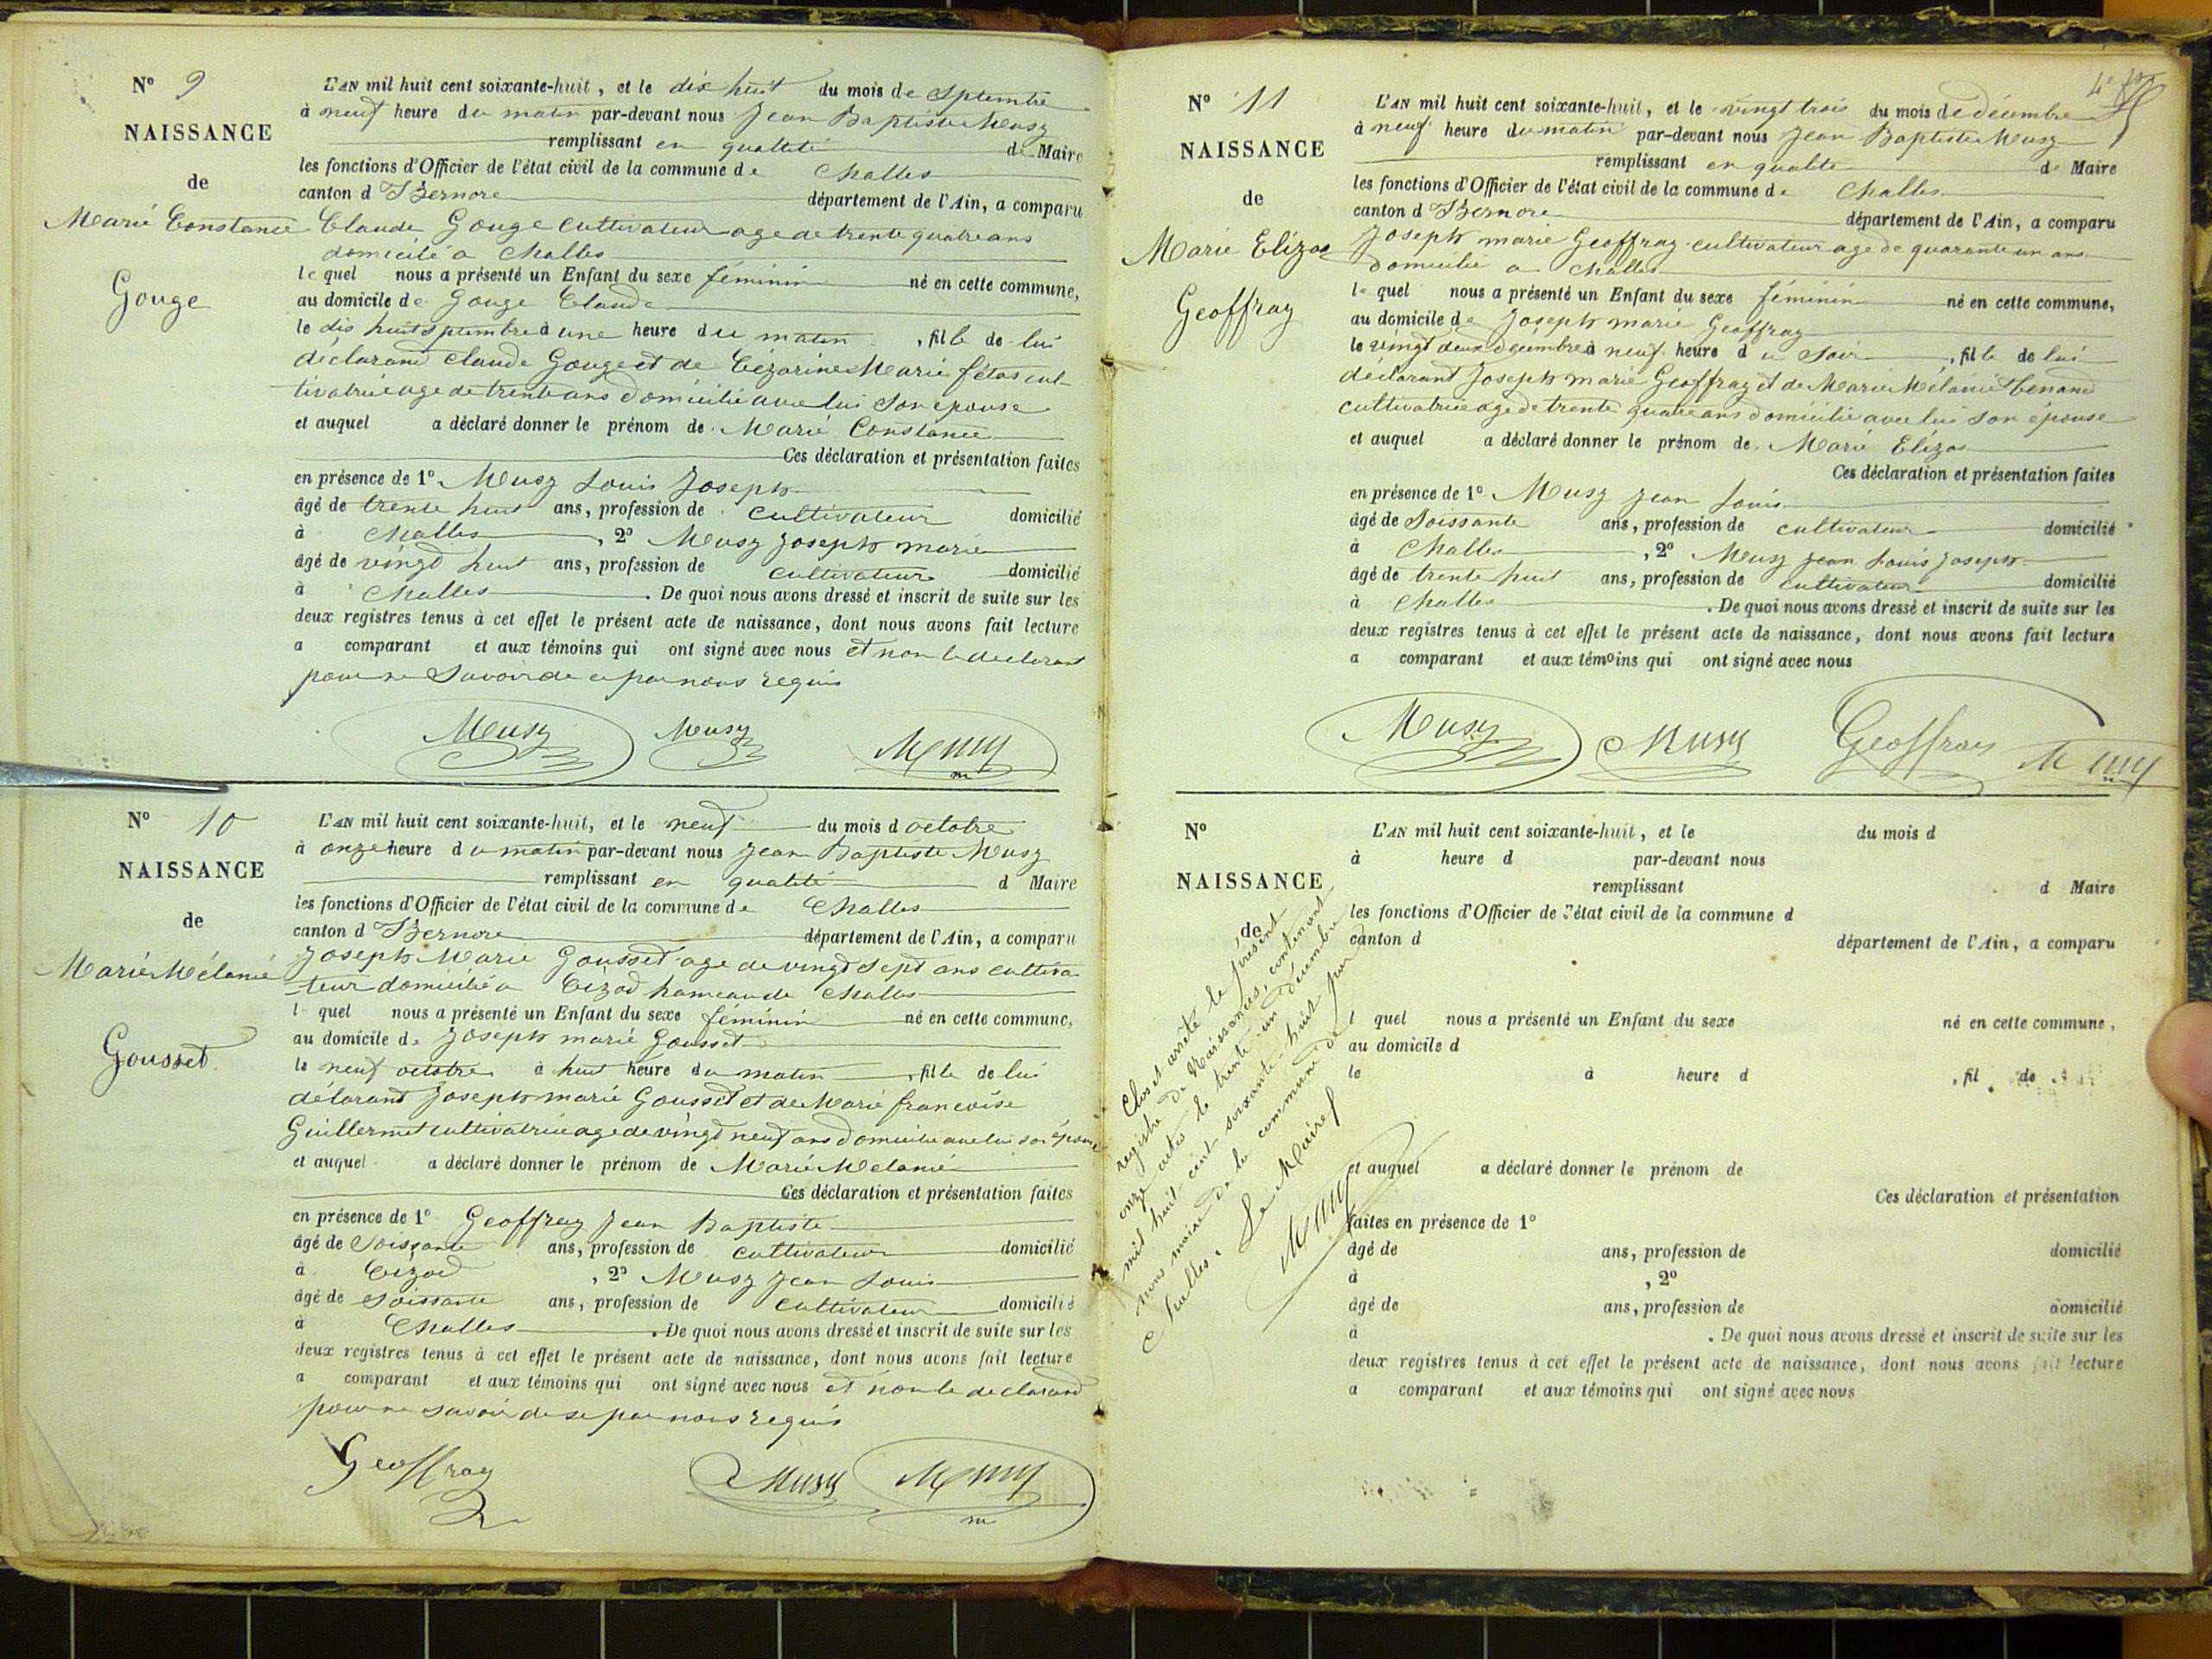 N° 9
NAISSANCE
de
Marie Constance
Gouge
L'AN mil huit cent soixante-huit, et le dix huit du mois de Septembre
à neuf heure du matin par-devant nous Jean Baptiste Musy
remplissant en qualité de Maire
les fonctions d'Officier de l'état civil de la commune de Challes
canton d Izernore département de l'Ain, a comparu
Claude Gouge cultivateur age de trente quatre ans
domicilié a Challes
le quel nous a présenté un Enfant du sexe féminin né en cette commune,
au domicile de Gouge Claude
le dix huit Septembre à une heure du matin, fille de lui
déclarant Claude Gouge et de Cézarine Marie fétas cul-
tivatrice age de trente ans domicilié avec lui Son épouse
et auquel a déclaré donner le prénom de Marie Constance
Ces déclaration et présentation faites
en présence de 1° Musy Louis Joseph
âgé de trente huit ans, profession de cultivateur domicilié
à Challes, 2° Musy Joseph marie
âgé de vingt huit ans, profession de cultivateur domicilié
à Challes. De quoi nous avons dressé et inscrit de suite sur les
deux registres tenus à cet effet le présent acte de naissance, dont nous avons fait lecture
a comparant et aux témoins qui ont signé avec nous et non le declarant
pour ne Savoir de ce par nous requis
Musy Musy Musy
m
N° 10
NAISSANCE
de
Marie Mélanie
Gousset
L'AN mil huit cent soixante-huit, et le neuf du mois d octobre
à onze heure du matin par-devant nous Jean Baptiste Musy
remplissant en qualité d Maire
les fonctions d'Officier de l'état civil de la commune de Challes
canton d Izernore département de l'Ain, a comparu
Joseph Marie Gousset age de vingt Sept ans cultiva-
-teur domicilié a Cizod hameau de Challes
l quel nous a présenté un Enfant du sexe féminin né en cette commune,
au domicile de Joseph marie Gousset
le neuf octobre à huit heure du matin, fille de lui
délarant Joseph marie Gousset et de Marie francoise
Guillermet cultivatrice age de vingt neuf ans domicilie avec lui son épouse
et auquel a déclaré donner le prénom de Marie Melanie
Ces déclaration et présentation faites
en présence de 1° Geoffray Jean Baptiste
âgé de Soissante ans, profession de cultivateur domicilié
à Cizod, 2° Musy Jean Louis
âgé de Soissante ans, profession de cultivateur domicilié
à Challes. De quoi nous avons dressé et inscrit de suite sur les
deux registres tenus à cet effet le présent acte de naissance, dont nous avons fait lecture
a comparant et aux témoins qui ont signé avec nous et non le declarand
pour ne savoir de se par nous requis
Geoffray Musy Musy
m
N° 11
NAISSANCE
de
Marie Elizae
Geoffray
L'AN mil huit cent soixante-huit, et le vingt trois du mois de decembre
à neuf heure du matin par-devant nous Jean Baptiste Musy
remplissant en qualité de Maire
les fonctions d'Officier de l'état civil de la commune de Challes
canton d Izernore département de l'Ain, a comparu
Joseph marie Geoffray cultivateur age de quarante un ans
domicilié a Challes
le quel nous a présenté un Enfant du sexe féminin né en cette commune,
au domicile de Joseph marie Geoffray
le vingt deux décembre à neuf heure du Soir, fille de lui
déclarant Joseph marie Geoffray et de Marie Mélanie
cultivatrice age de trente quatre ans domicilié avec lui son épouse
et auquel a déclaré donner le prénom de Marie Elizae
Ces déclaration et présentation faites
en présence de 1° Musy Jean Louis
âgé de Soissante ans, profession de cultivateur domicilié
à Challes, 2° Musy Jean Louis Joseph
âgé de trente huit ans, profession de cultivateur domicilié
à Challes. De quoi nous avons dressé et inscrit de suite sur les
deux registres tenus à cet effet le présent acte de naissance, dont nous avons fait lecture
a comparant et aux témoins qui ont signé avec nous
Musy Musy Geoffray Musy
N°
NAISSANCE
de
L'AN mil huit cent soixante-huit, et le du mois d
à heure d par-devant nous
remplissant d Maire
les fonctions d'Officier de l'état civil de la commune d
canton d département de l'Ain, a comparu
l quel nous a présenté un Enfant du sexe né en cette commune,
au domicile d
le à heure d, fil de
et auquel a déclaré donner le prénom de
Ces déclaration et présentation
faites en présence de 1°
âgé de ans, profession de domicilié
à, 2°
âgé de ans, profession de domicilié
à. De quoi nous avons dressé et inscrit de suite sur les
deux registres tenus à cet effet le présent acte de naissance, dont nous avons fait lecture
a comparant et aux témoins qui ont signé avec nous
Clos et arrêté le présent
registre de Naissances, contenant
onze actes le trente-un décembre
mil huit cent soixante-huit par
nous maire de la commune de
Challes.
Le Maire
Musy